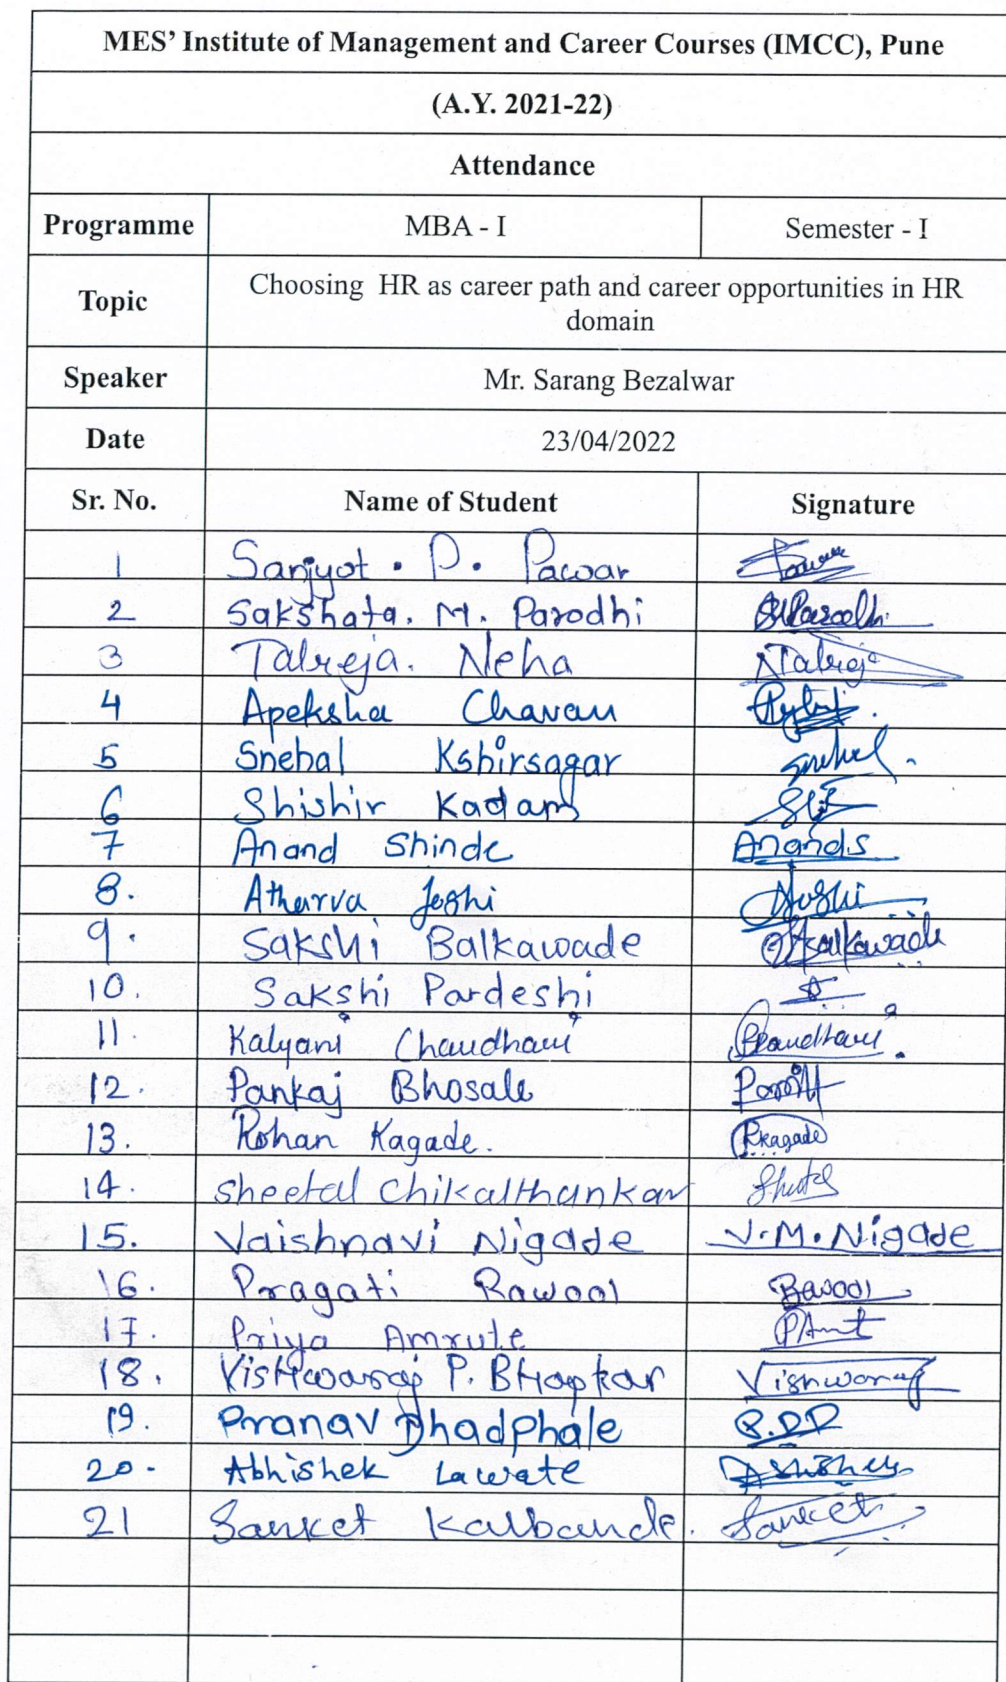 MES' Institute of Management and Career Courses (IMCC), Pune
(A.Y. 2021-22)
Attendance
Programme MBA - I Semester - I
Topic Choosing HR as career path and career opportunities in HR
domain
Speaker Mr. Sarang Bezalwar
Date 23/04/2022
Sr. No. Name of Student Signature
1 Sanjyot . P. Pawar
2 Sakshata. M. Parodhi
3 Talreja. Neha NTalreja
4 Apeksha Chavan
5 Snehal Kshirsagar Snehal.
6 Shishir Kadam
7 Anand Shinde AnandS
8. Atharva Joshi AJoshi
9. Sakshi Balkawade
10. Sakshi Pardeshi
11. Kalyani Chaudhari
12. Pankaj Bhosale
13. Rohan Kagade. RKagade
14. Sheetal Chikalthankar Sheetal
15. Vaishnavi Nigade V.M.Nigade
16. Pragati Rawool Rawool
17. Priya Amrute
18. Vishwaraj P. Bhapkar Vishwaraj
19. Pranav Dhadphale
20. Abhishek Lawate Abhishek
21 Sanket Kalbande. Sanket